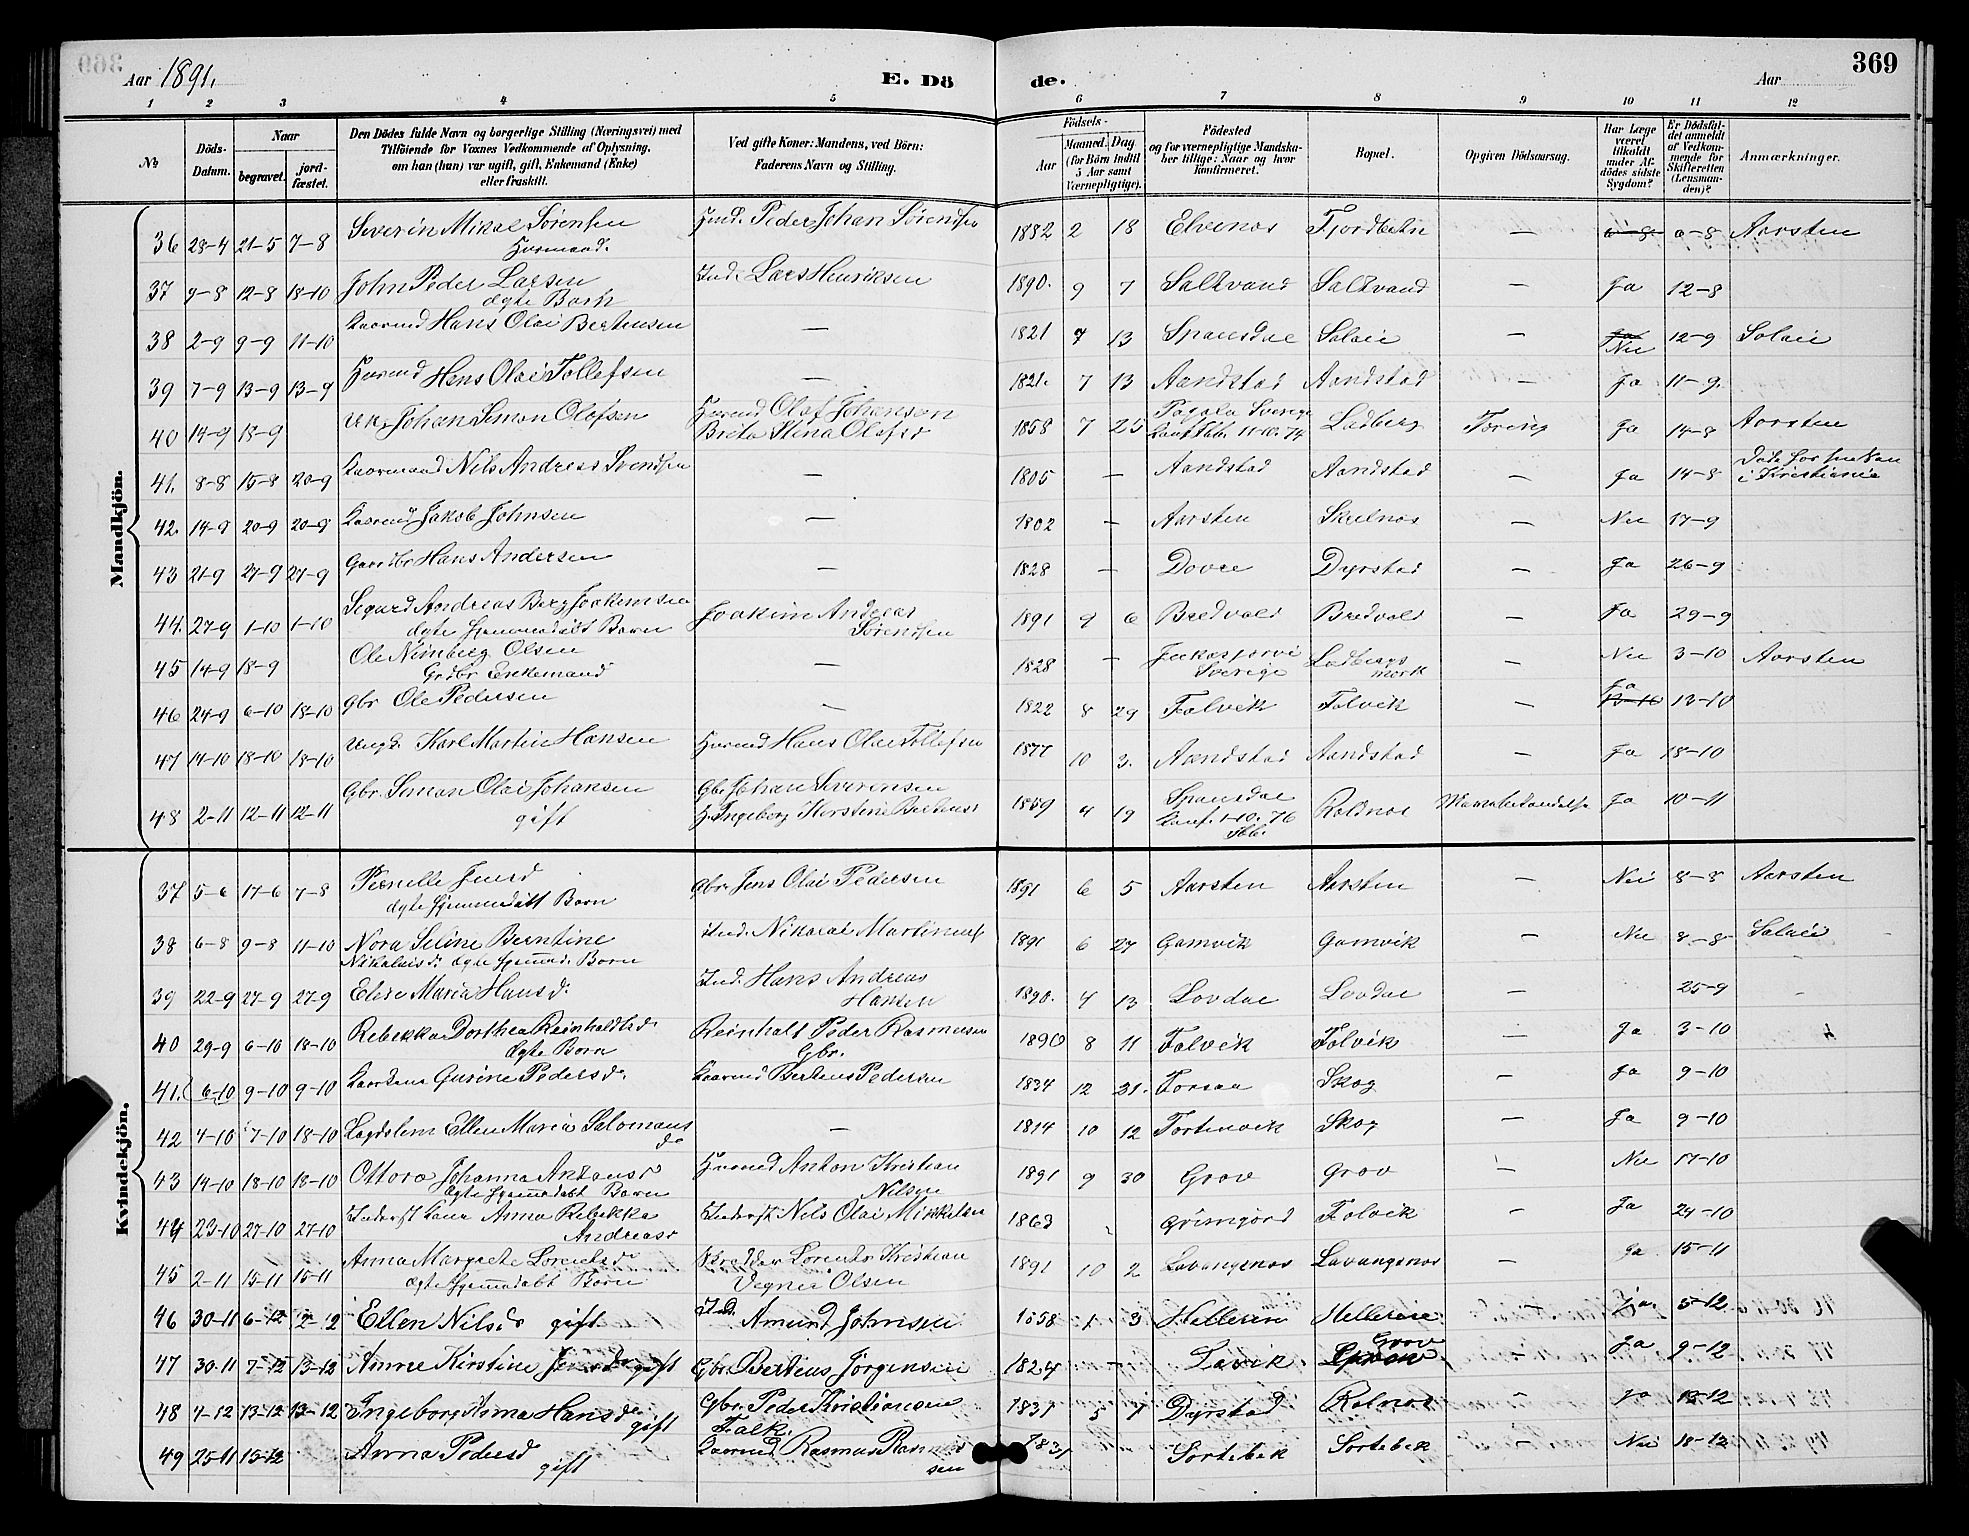 369
Aar 1891.
E. Dö de.
Aar
1 2 3 4 5 6 7 8 9 10 11 12
№
Döds-Datum.
Naar
begravet. jordfæstet.
Den Dödes fulde Navn og borgerlige Stilling (Næringsvei) med
Tilföiende for Voxnes Vedkommende af Oplysning,
om han (hun) var ugift, gift, Enkemand (Enke)
eller fraskilt.
Ved gifte Koner: Mandens, ved Börn:
Faderens Navn og Stilling.
Födsels-
Aar
Maaned. Dag
(for Börn indtil 5 Aar samt Værnepligtige).
Födested
og for værnepligtige Mandskaber tillige: Naar og hvor konfirmeret.
Bopæl.
Opgiven Dödsaarsag.
Har Læge været tilkaldt under Afdödes sidste Sygdom?
Er Dödsfaldet anmeldt af Vedkommende for Skifteretten (Lensmanden)?
Anmærkninger.
Mandkjön.
36 28-4 21-5 7-8 Severin Mikal Sörensen Husmand. Peder Johan Sörendsen 1882 2 18 Elvenos Fjordbotn — 0-8 Aarsten
37 9-8 12-8 18-10 John Peder Larsen ægte Barn Ind. Lars Henriksen 1890. 9 7 Saltvand Saltvand — Ja 12-8
38 2-9 9-9 11-10 Kaarmd Hans Olai Berthensen — 1821 7 13 Spansdal Salaii — Nei 12-9 Salaii
39 7-9 13-9 13-9 Husmd Hans Olai Tollefsen — 1821. 7 13 Aandstad Aandstad — Ja 11-9.
40 14-9 18-9 Johan Simon Olofsen Husmd Olof Johansen
Brita Stina Olofsd 1858 7 25 Pagala Sverige
11-10. 74 Ladberg Tæring Ja 14-8 Aarsten
41. 8-8 15-8 20-9 Kaarmand Nils Andreas Svendsen — 1805 — Aandstad Aandstad — Ja 14-8
i Kristiania
42. 14-9 20-9 20-9 Kaarmd Jakob Johnsen — 1802 — Aarsten Skulnos Nei 17-9
43 21-9 27-9 27-9 Gaardbr Hans Andersen — 1828 — Dovre Dyrstad — Ja 26-9
44. 27-9 1-10 1-10 Segard Andreas Berg Joakimsen
ægte hjemmedøbt Barn Joakim Andreas
Sörendsen 1891 9 6 Bredvold Bredvold — Ja 29-9
45 14-9 18-9 Ole Nimberg Olsen
Grdbr Enkemand — 1828 — Jukasjorvi
Sverige Ladbergs
mork Nei 3-10 Aarsten
46 24-9 6-10 18-10 gbr Ole Pedersen — 1822 8 29 Folvik Folvik — Ja 13-10
47 14-10 18-10 18-10 Ungk. Karl Martin Hansen Husmd Hans Olai Tollefsen 1877 10 3. Aandstad Aandstad — Ja 18-10
48 2-11 12-11 12-11 Gbr. Simon Olai Johansen
gift Gbr Johan Severensen
Ingeborg Kirstine 1859 4 19 Spansdal
Konf. 1-10. 76 Rolnos Ja 10-11
Kvindekjön.
37 5-6 17-6 7-8 Pernelle Jensd
ægte hjemmedøbt Barn gbr Jens Olai Pedersen 1891 6 5 Aarsten Aarsten — Nei 8-8 Aarsten
38 6-8 9-8 11-10 Nora Seline Berntine
Nikolaisd. ægte hjemmed. Barn Ind. Nikolai Martinus 1891 6 27 Gamvik Gamvik — Nei 8-8 Salaii
39 22-9 27-9 27-9 Elise Maria Hansd. Ind. Hans Andreas
Hansen 1890. 4 13 Lovdal Lovdal — 25-9
40 29-9 6-10 18-10 Rebekka Dorthea Reinholdtsd
ægte Barn Reinholt Peder Rasmusen
Gbr. 1890 8 11 Folvik Folvik — Ja 3-10
41. 6-10 9-10 9-10 Kaarkone Gurine Pedersd. Kaarmd Berteus Pedersen 1834 12 31. Forsaa Skog — Ja 9-10
42 4-10 7-10 18-10 Lægdslem Ellen Maria Salomons
d. — 1814 10 12 Fortinvik Skog — Ja 9-10
43 14-10 18-10 18-10 Ottora Johanna Antonsd
ægte hjemmedøbt Barn Husmd Anton Kristian
Nilsen 1891 9 30 Grov Grov — Nei 17-10
44 23-10 27-10 27-10 Inderst kone Anna Rebekka
Andreasd Inderst Nils Olai Mikkelsen 1863 Grimgord Folvik — Ja 24-10
45 2-11 15-11 15-11 Anna Margrete Lorentsd
ægte hjemmedøbt Barn Lorents Kristian
Vegner Olsen 1891 10 2 Lavangsnos Lavangsnos — Ja 15-11
46 30-11 6-12 12-12 Ellen Nilsd gift Ind. Amund Johnsen 1858 1 3 Helleren Hellerene Ja 5-12
47 30-11 7-12 13-12 Anne Kirstine Jensd. gift Gbr. Berteus Jörgensen 1824 — Lavik. Grov — Ja 9-12
48 4-12 13-12 13-12 Ingeborg Anna Hansd.
gift Gbr Peder Kristiansen
Falk. 1837 5 7 Dyrstad Rolnos — Ja 13-12
49 25-11 15-12 Anna Pedersd
gift Kaarmd Rasmus Rasmus
sen 1831 — Sortebek Sortebek — Nei 18-12